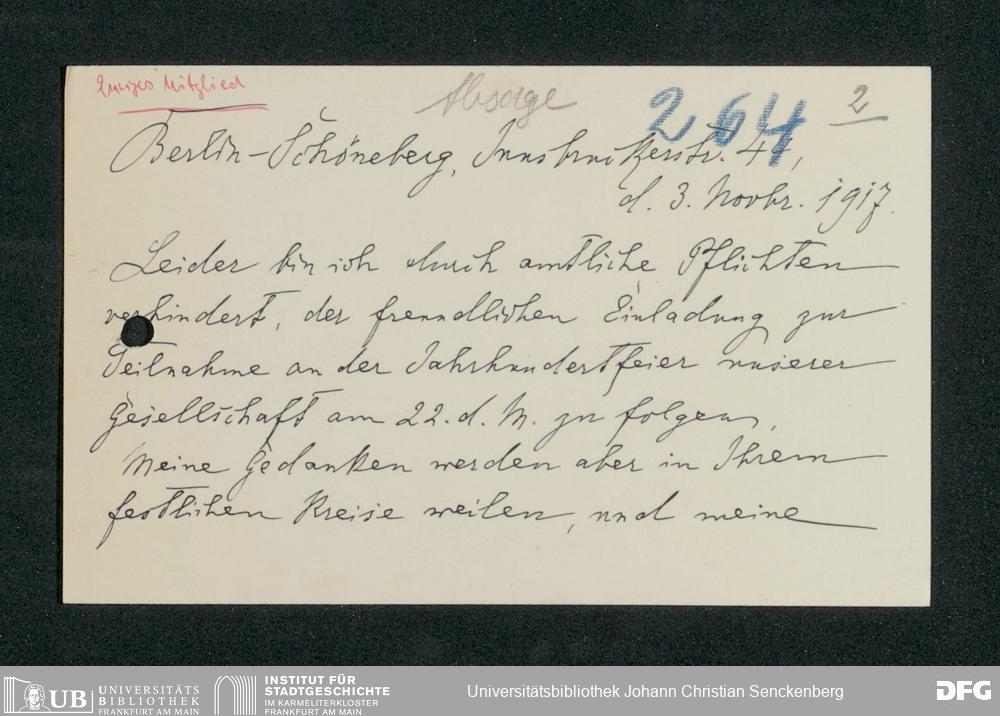 Ewiges Mitglied
Absage
264
2
Berlin-Schöneberg, Innsbruckerstr. 44,
d. 3. Novbr. 1917.
Leider bin ich durch amtliche Pflichten
verhindert, der freundlichen Einladung zur
Teilnahme an der Jahrhundertfeier unserer
Gesellschaft am 22. d. M. zu folgen.
Meine Gedanken werden aber in Ihrem
festlichen Kreise weilen, und meine
UB UNIVERSITÄTS
BIBLIOTHEK
FRANKFURT AM MAIN
INSTITUT FÜR
STADTGESCHICHTE
IM KARMELITERKLOSTER
FRANKFURT AM MAIN
Universitätsbibliothek Johann Christian Senckenberg
DFG